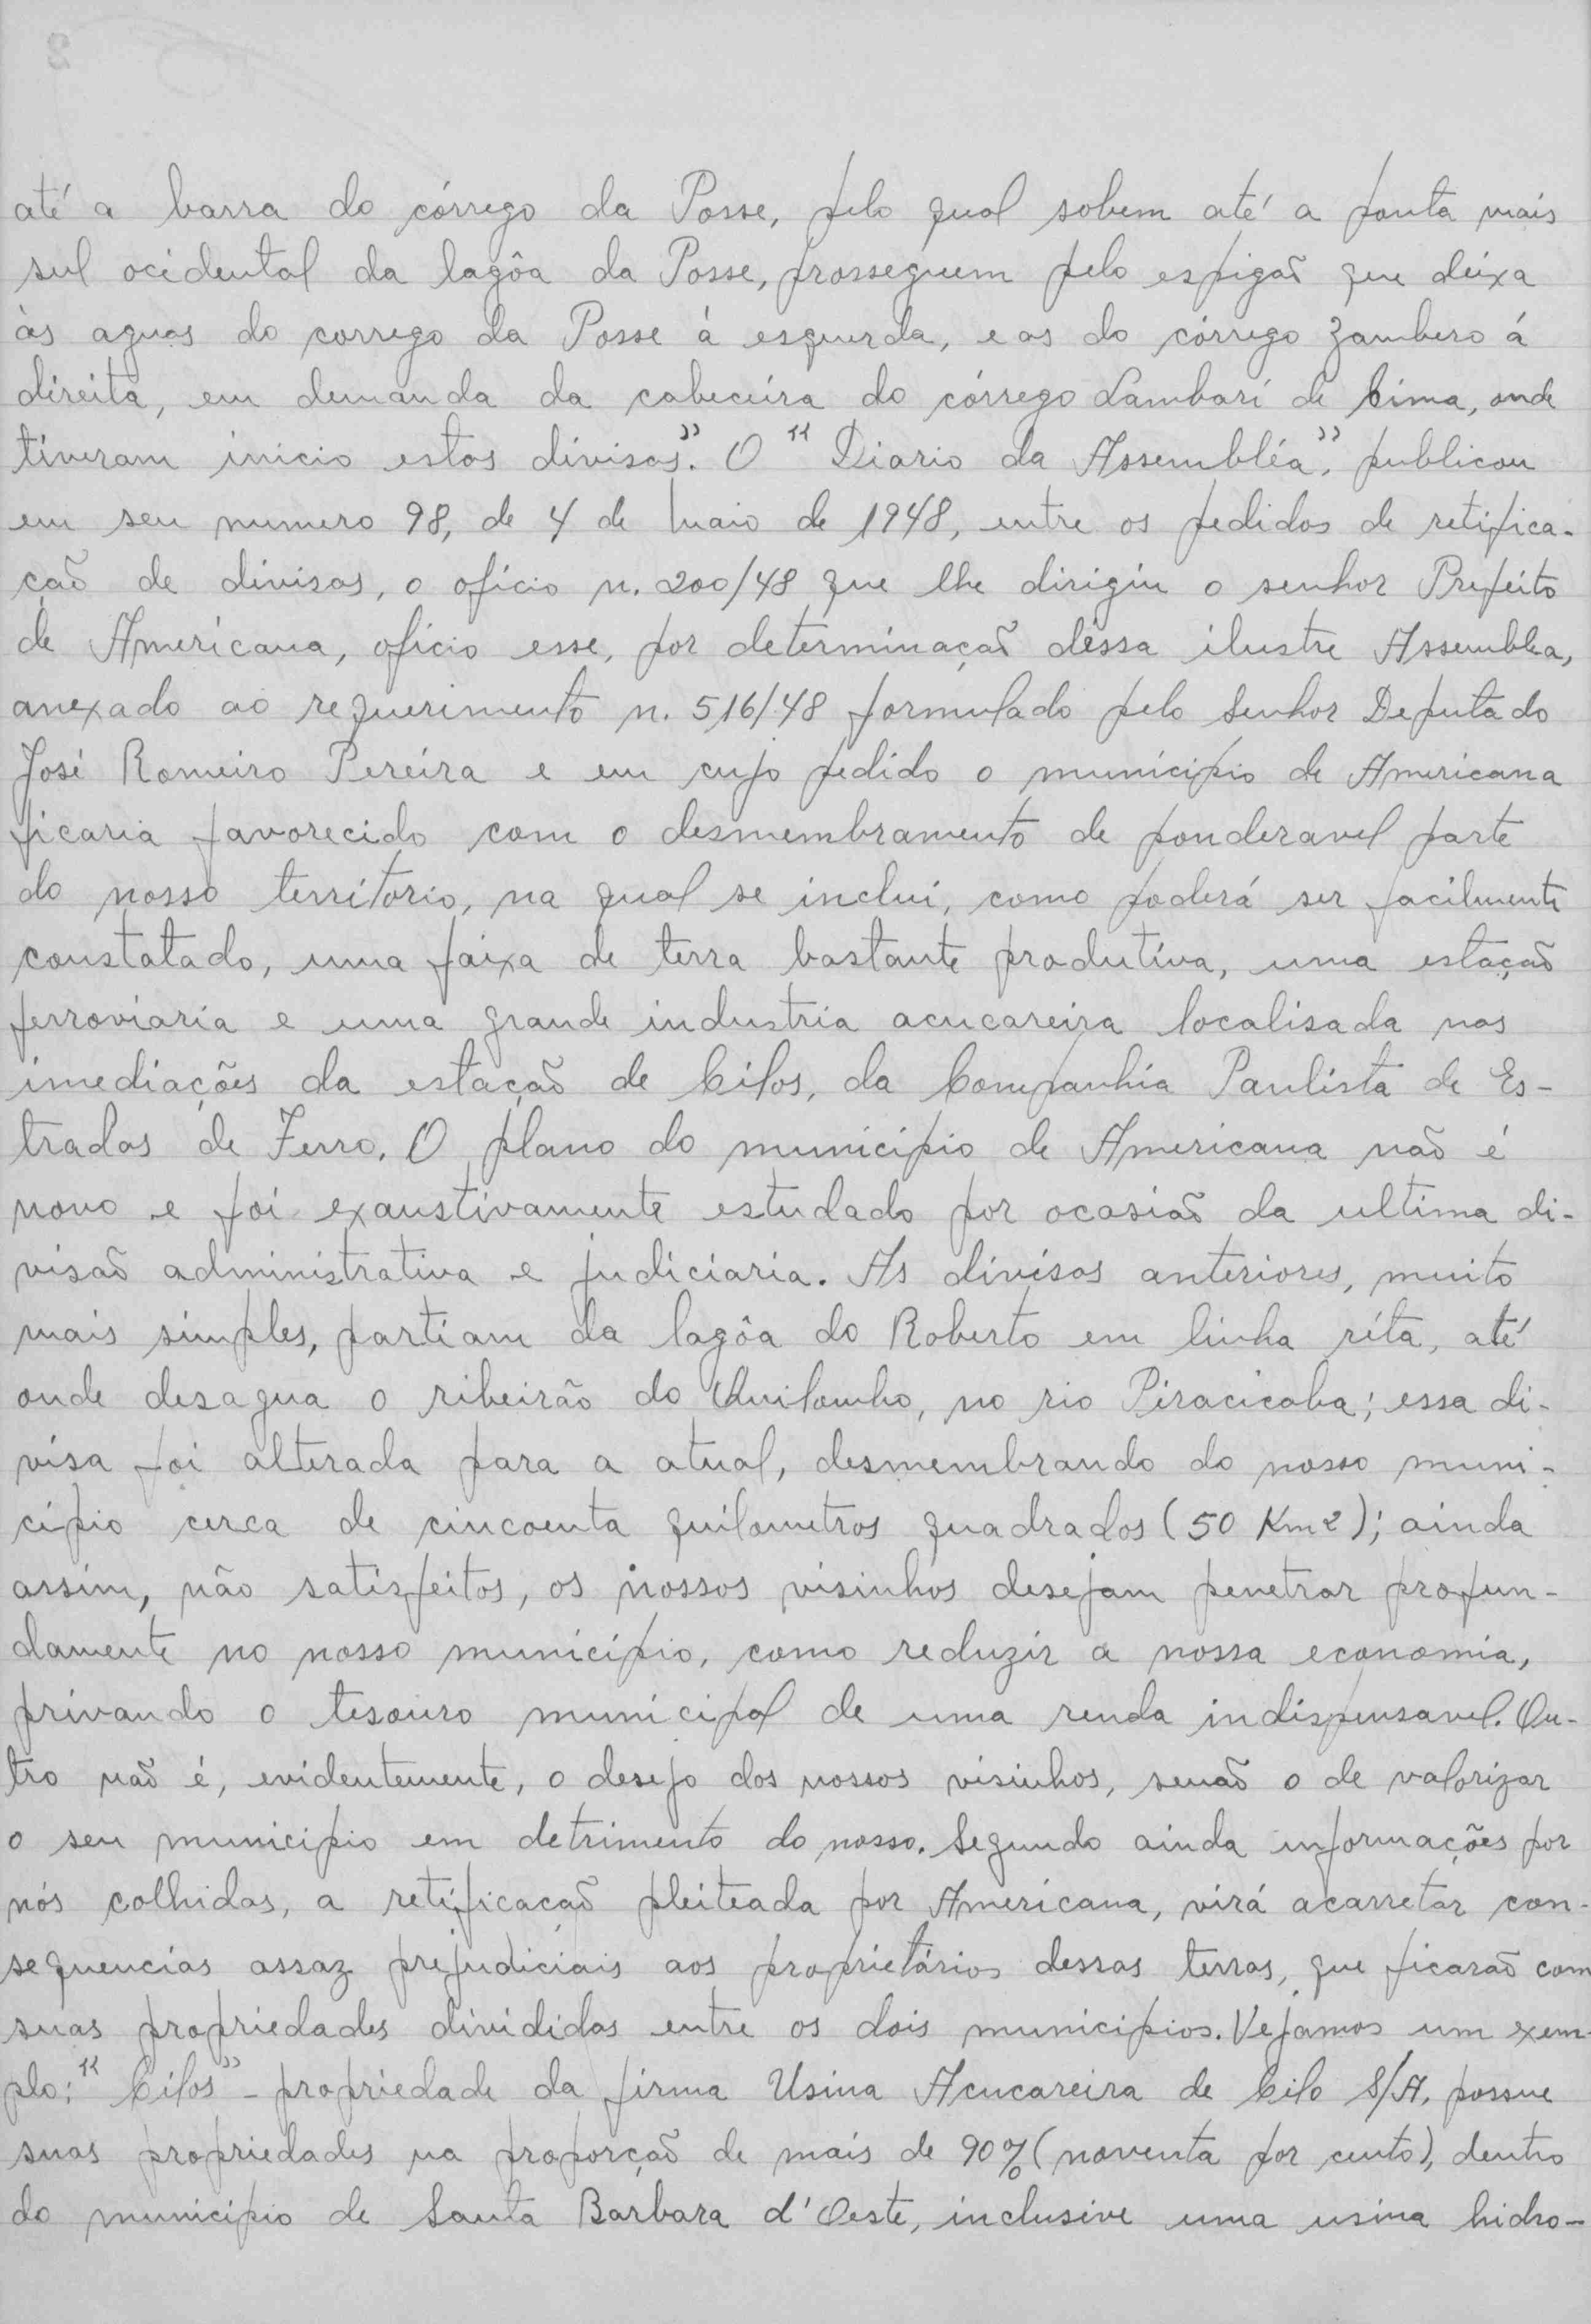 até a barra do córrego da Posse, pelo qual sobem até a ponta mais
sul ocidental da lagôa da Posse, prosseguem pelo espigaõ que deixa
às aguas do corrego da Posse á esquerda, e as do córrego Zambero á
direita, em demanda da cabeceira do córrego Lambari de Cima, onde
tiveram inicio estas divisas". O "Diario da Assembléa", publicou
em seu numero 98, de 4 de Maio de 1948, entre os pedidos de retifica-
çaõ de divisas, o oficio n. 200/48 que lhe dirigiu o senhor Prefeito
de Americana, oficio esse, por determinaçaõ dêssa ilustre Assemblea,
anexado ao requerimento n. 516/48 formulado pelo Senhor Deputado
José Romeiro Pereira e em cujo pedido o municipio de Americana
ficaria favorecido com o desmembramento de ponderavel parte
do nosso territorio, na qual se inclui, como poderá ser facilmente
constatado, uma faixa de terra bastante produtiva, uma estaçaõ
ferroviaria e uma grande industria acucareira localisada nas
imediações da estaçaõ de Cilos, da Companhia Paulista de Es-
tradas de Ferro. O plano do municipio de Americana naõ é
novo e foi exaustivamente estudado por ocasiaõ da ultima di-
visaõ administrativa e judiciaria. As divisas anteriores, muito
mais simples, partiam da lagôa do Roberto em linha réta, até
onde desagua o ribeirão do Quilombo, no rio Piracicaba; essa di-
visa foi alterada para a atual, desmembrando do nosso muni-
cipio cerca de cincoenta quilometros quadrados (50 Km2); ainda
assim, não satisfeitos, os nossos visinhos desejam penetrar profun-
damente no nosso municipio, como reduzir a nossa economia,
privando o tesouro municipal de uma renda indispensavel. Ou-
tro naõ é, evidentemente, o desejo dos nossos visinhos, senaõ o de valorizar
o seu municipio em detrimento do nosso. Segundo ainda informações por
nós colhidas, a retificacaõ pleiteada por Americana, virá acarretar con-
sequencias assaz prejudiciais aos proprietários dessas terras, que ficaraõ com
suas propriedades divididas entre os dois municipios. Vejamos um exem-
plo: "Cilos" - propriedade da firma Usina Acucareira de Cilo S/A, possue
suas propriedades na proporçaõ de mais de 90% (noventa por cento), dentro
do municipio de Santa Barbara d'Oeste, inclusive uma usina hidro-